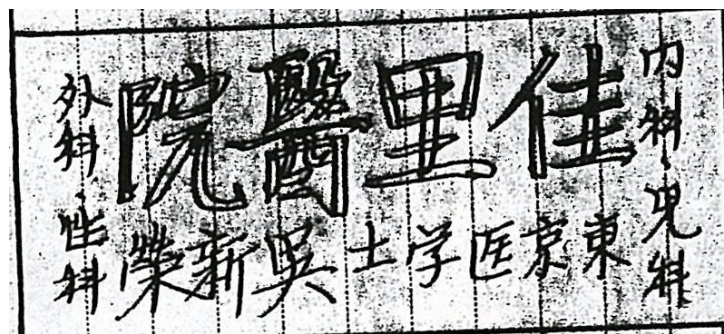 内科・児科
佳里醫院
東京医学士吳新榮
外科・性科